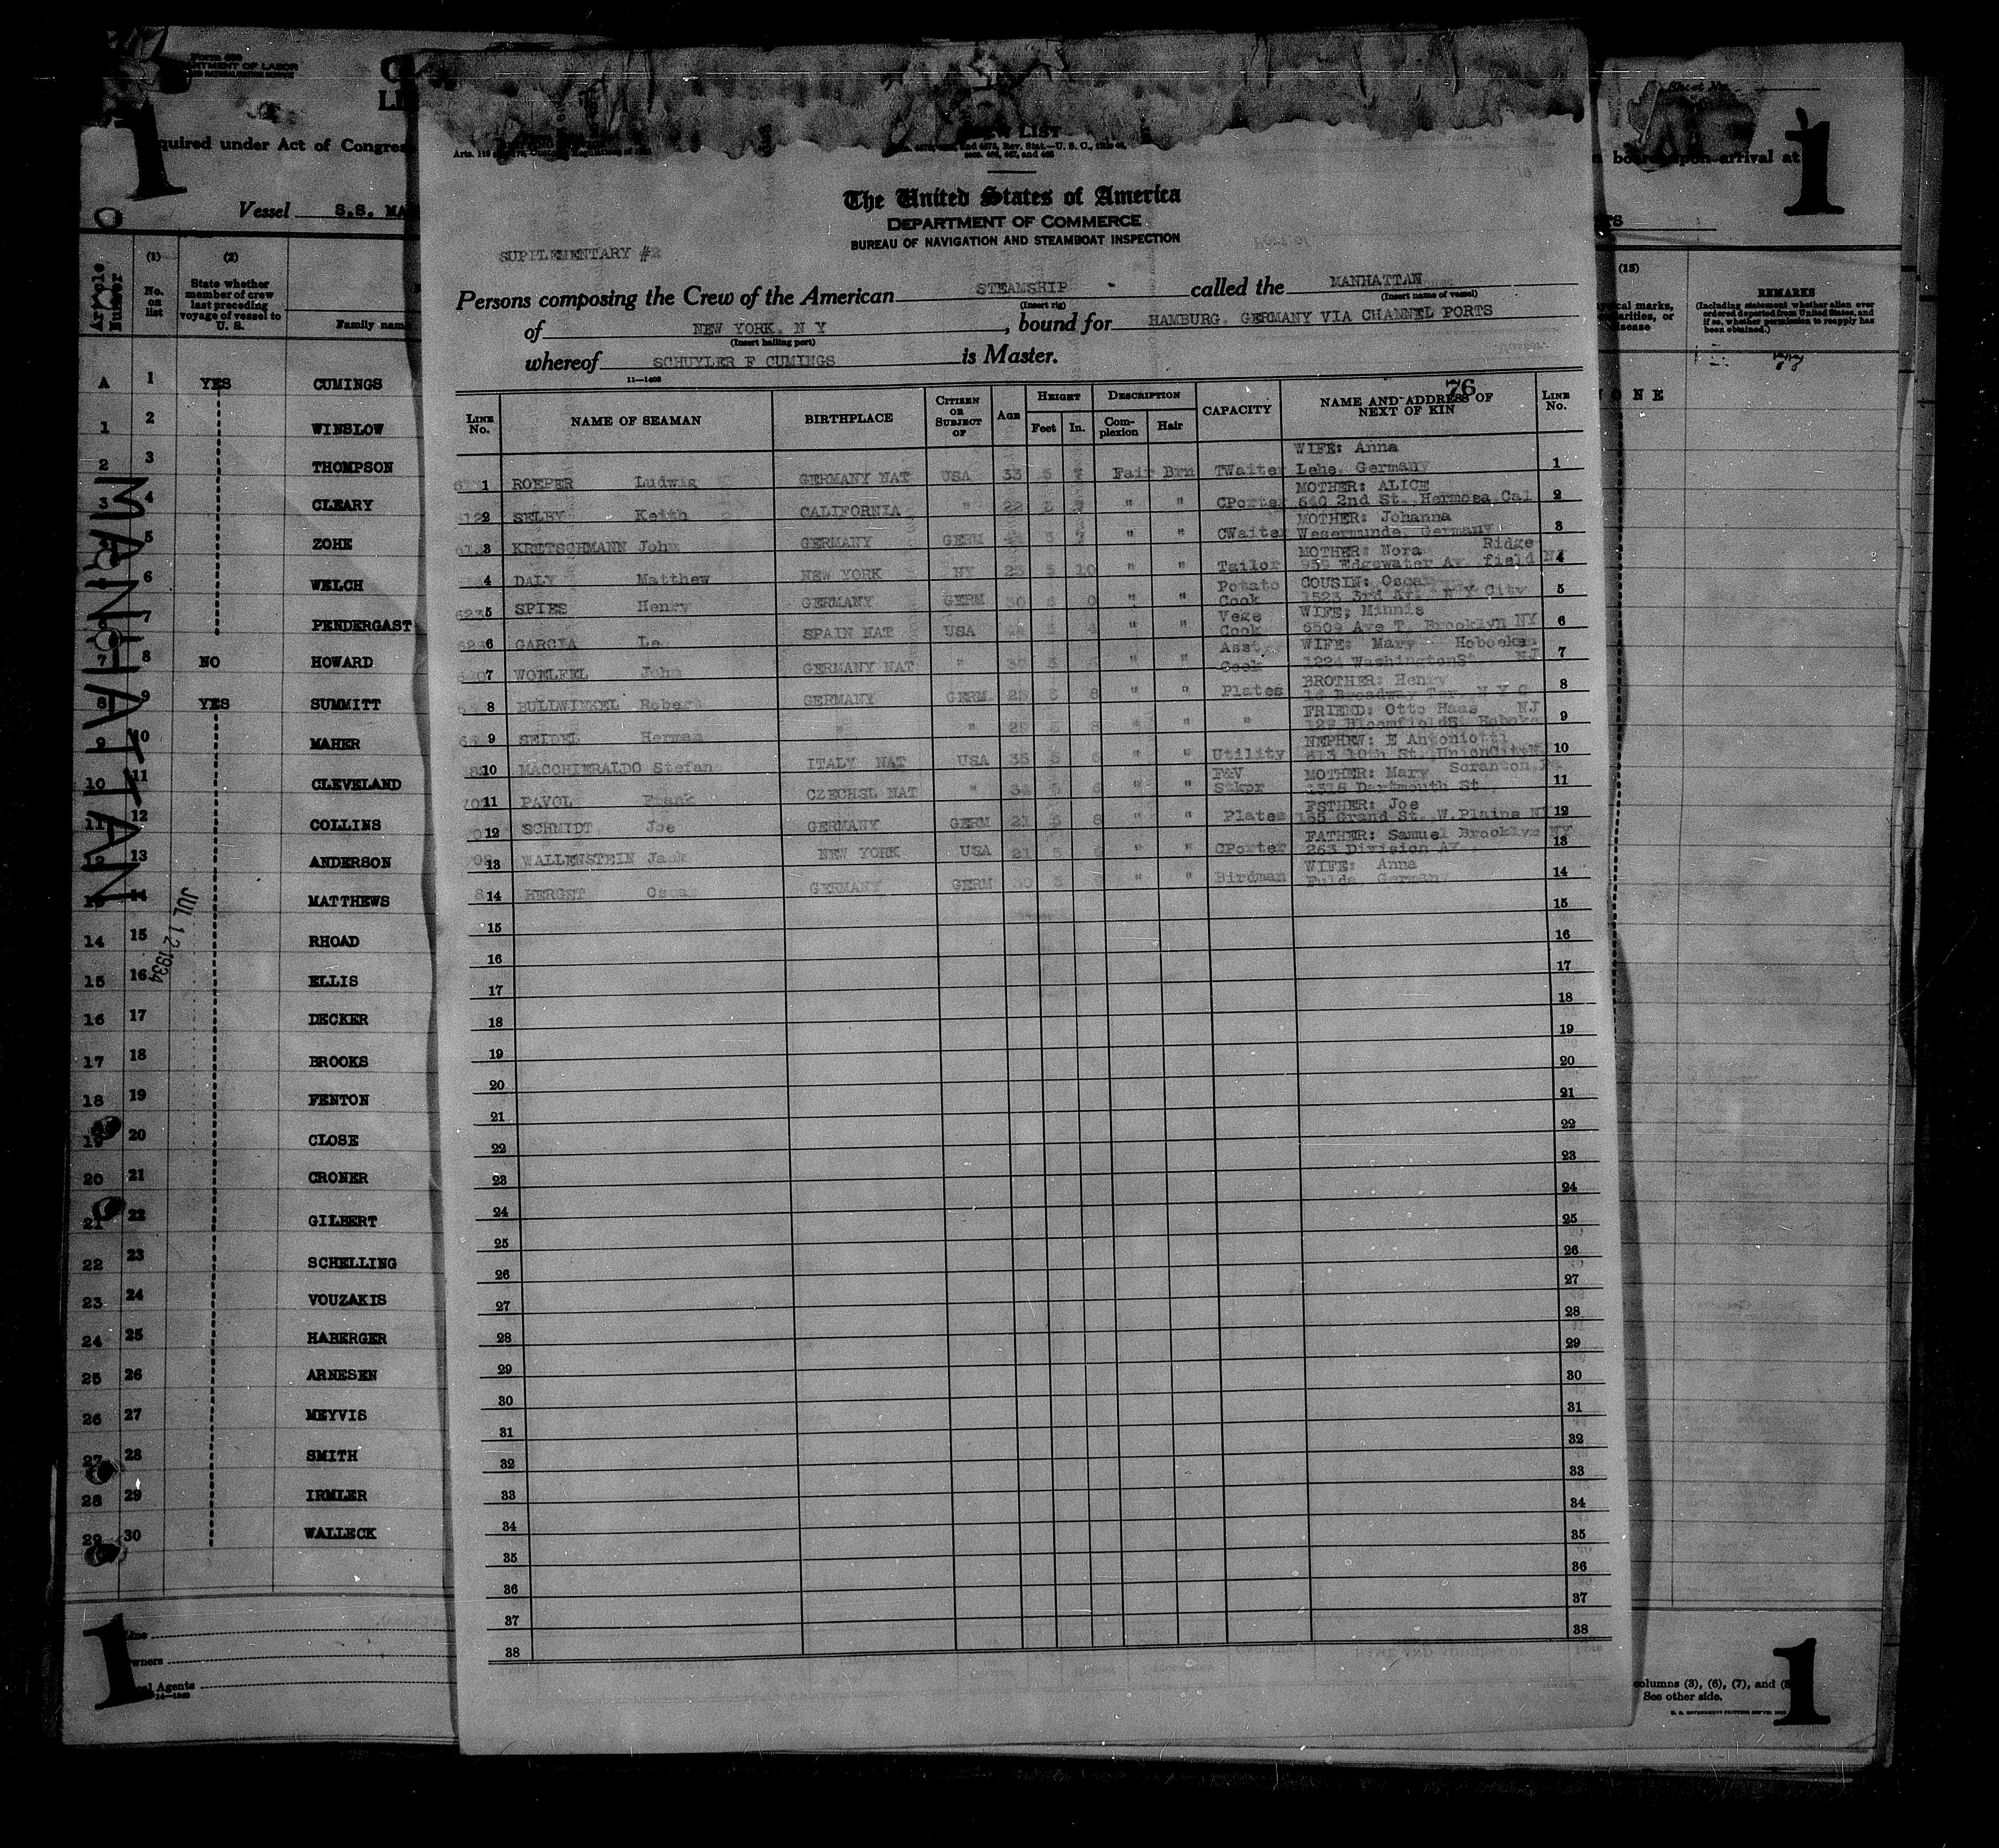 Form 680
DEPARTMENT OF LABOR
1
quired under Act of Congres
Vessel S.S. MA
Article Number
(1) No. on list
(2) State whether member of crew last preceding voyage of vessel to U. S.
Family nam
A 1 YES CUMINGS
1 2 WINSLOW
2 3 THOMPSON
3 4 CLEARY
5 ZOHE
6 WELCH
7 PENDERGAST
7 8 NO HOWARD
8 9 YES SUMMITT
9 10 MAHER
10 11 CLEVELAND
11 12 COLLINS
12 13 ANDERSON
13 14 MATTHEWS
14 15 RHOAD
15 16 ELLIS
16 17 DECKER
17 18 BROOKS
18 19 FENTON
19 20 CLOSE
20 21 CRONER
21 22 GILBERT
22 23 SCHELLING
23 24 VOUZAKIS
24 25 HABERGER
25 26 ARNESEN
26 27 MEYVIS
27 28 SMITH
28 29 IRMLER
29 30 WALLECK
MANHATTAN
JUL 12 1934
Line
Owners
Agents
1
CREW LIST
The United States of America
DEPARTMENT OF COMMERCE
BUREAU OF NAVIGATION AND STEAMBOAT INSPECTION
SUPPLEMENTARY #2
Persons composing the Crew of the American STEAMSHIP called the MANHATTAN
(Insert rig) (Insert name of vessel)
of NEW YORK, N Y, bound for HAMBURG, GERMANY VIA CHANNEL PORTS
(Insert hailing port)
whereof SCHUYLER F CUMINGS is Master.
11—1408
76
LINE No. NAME OF SEAMAN BIRTHPLACE CITIZEN OR SUBJECT OF AGE HEIGHT Feet In. DESCRIPTION Complexion Hair CAPACITY NAME AND ADDRESS OF NEXT OF KIN LINE No.
WIFE: Anna
1 ROEPER Ludwig GERMANY NAT USA 33 5 7 Fair Brn TWaiter Lehe, Germany 1
MOTHER: ALICE
2 SELBY Keith CALIFORNIA " 22 5 " " CPorter 640 2nd St. Hermosa Cal 2
MOTHER: Johanna
3 KRETSCHMANN John GERMANY GERM 5 7 " " CWaiter Wesermunde, Germany 3
MOTHER: Nora Ridge
4 DALY Matthew NEW YORK NY 23 5 10 " " Tailor 959 Edgewater Av. field NJ 4
Potato COUSIN: Oscar
5 SPIES Henry GERMANY GERM 30 6 0 " " Cook 1523 3rd Av. N Y City 5
Vege WIFE: Minnie
6 GARCIA SPAIN NAT USA " " Cook 6509 Ave T. Brooklyn NY 6
Asst WIFE: Mary Hoboken
7 WOELFEL John GERMANY NAT " 5 " " Cook 1224 WashingtonSt NJ 7
BROTHER: Henry
8 BULLWINKEL Robert GERMANY GERM 29 5 8 " " Plates 16 Broadway Ter. N Y C 8
FRIEND: Otto Haas NJ
9 SEIDEL Herman " " 29 5 8 " " " 129 BloomfieldSt Hoboken 9
NEPHEW: E Antoniotti
10 MACCHIERALDO Stefano ITALY NAT USA 35 5 6 " " Utility 613 10th St. UnionCity 10
F&V MOTHER: Mary Scranton Pa
11 PAVOL Frank CZECHSL NAT " 5 6 " " Stkpr 1318 Dartmouth St. 11
FSTHER: Joe
12 SCHMIDT Joe GERMANY GERM 21 5 8 " " Plates 135 Grand St. W.Plains NY 12
FATHER: Samuel Brooklyn NY
13 WALLENSTEIN Jack NEW YORK USA 21 5 " " CPorter 263 Division Av. 13
WIFE: Anna
14 HERGET Oscar GERMANY GERM 30 5 " " Birdman Fulda Germany 14
15 15
16 16
17 17
18 18
19 19
20 20
21 21
22 22
23 23
24 24
25 25
26 26
27 27
28 28
29 29
30 30
31 31
32 32
33 33
34 34
35 35
36 36
37 37
38 38
Sheet No.
1
board upon arrival at
TS
(15)
cal marks, arities, or disease
REMARKS
(Including statement whether alien ever ordered deported from United States, and if so, whether permission to reapply has been obtained.)
O N E
columns (3), (6), (7), and (8
See other side.
U. S. GOVERNMENT PRINTING OFFICE
1